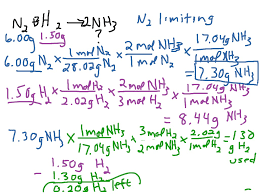 N2 + 3H2 → 2NH3 N2 limiting
6.00g 1.50g ?
6.00g N2 × 1 mol N2 / 28.02g N2 × 2 mol NH3 / 1 mol N2 × 17.04g NH3 / 1 mol NH3
= 7.30g NH3
1.50g H2 × 1 mol H2 / 2.02g H2 × 2 mol NH3 / 3 mol H2 × 17.04g NH3 / 1 mol NH3
= 8.44g NH3
7.30g NH3 × 1 mol NH3 / 17.04g NH3 × 3 mol H2 / 2 mol NH3 × 2.02g / 1 mol H2 = 1.30 g H2 used
1.50g H2
- 1.30g H2
0.20g H2 left